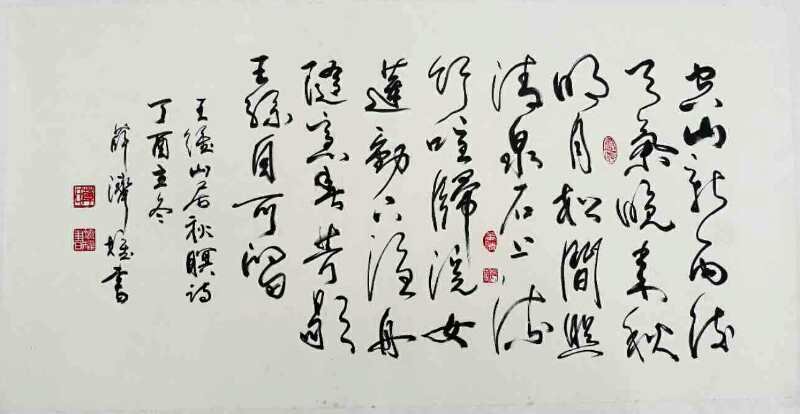 空山新雨後
天氣晚來秋
明月松間照
清泉石上流
竹喧歸浣女
蓮動下漁舟
隨意春芳歇
王孫自可留
王維山居秋瞑詩
丁酉立冬
薛濟書